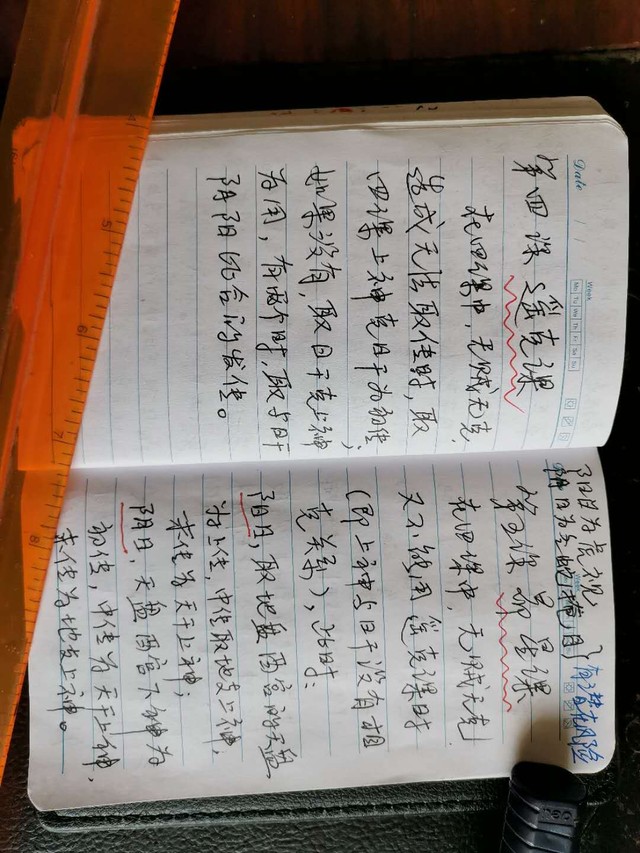 Date / /
Week
Mo Tu We Th Fr Sa Su
第四课 遥克课
在四课中,无贼无克,
造成无法取传时,取
四课上神克日干为初传,
如果没有,取日干克上神
为用,有两个时,取与日干
阴阳比合的发传。
阳日为虎视
阴日为冬蛇掩目
危险
第五课 昴星课
在四课中,无贼无克
又不能用遥克课时
(即上神与日干没有相
克关系),此时:
阳日,取地盘酉宫的天盘
为上传,中传取地支上神,
末传为天干上神;
阴日,天盘酉宫下神为
初传,中传为天干上神,
末传为地支上神。
5
6
7
8